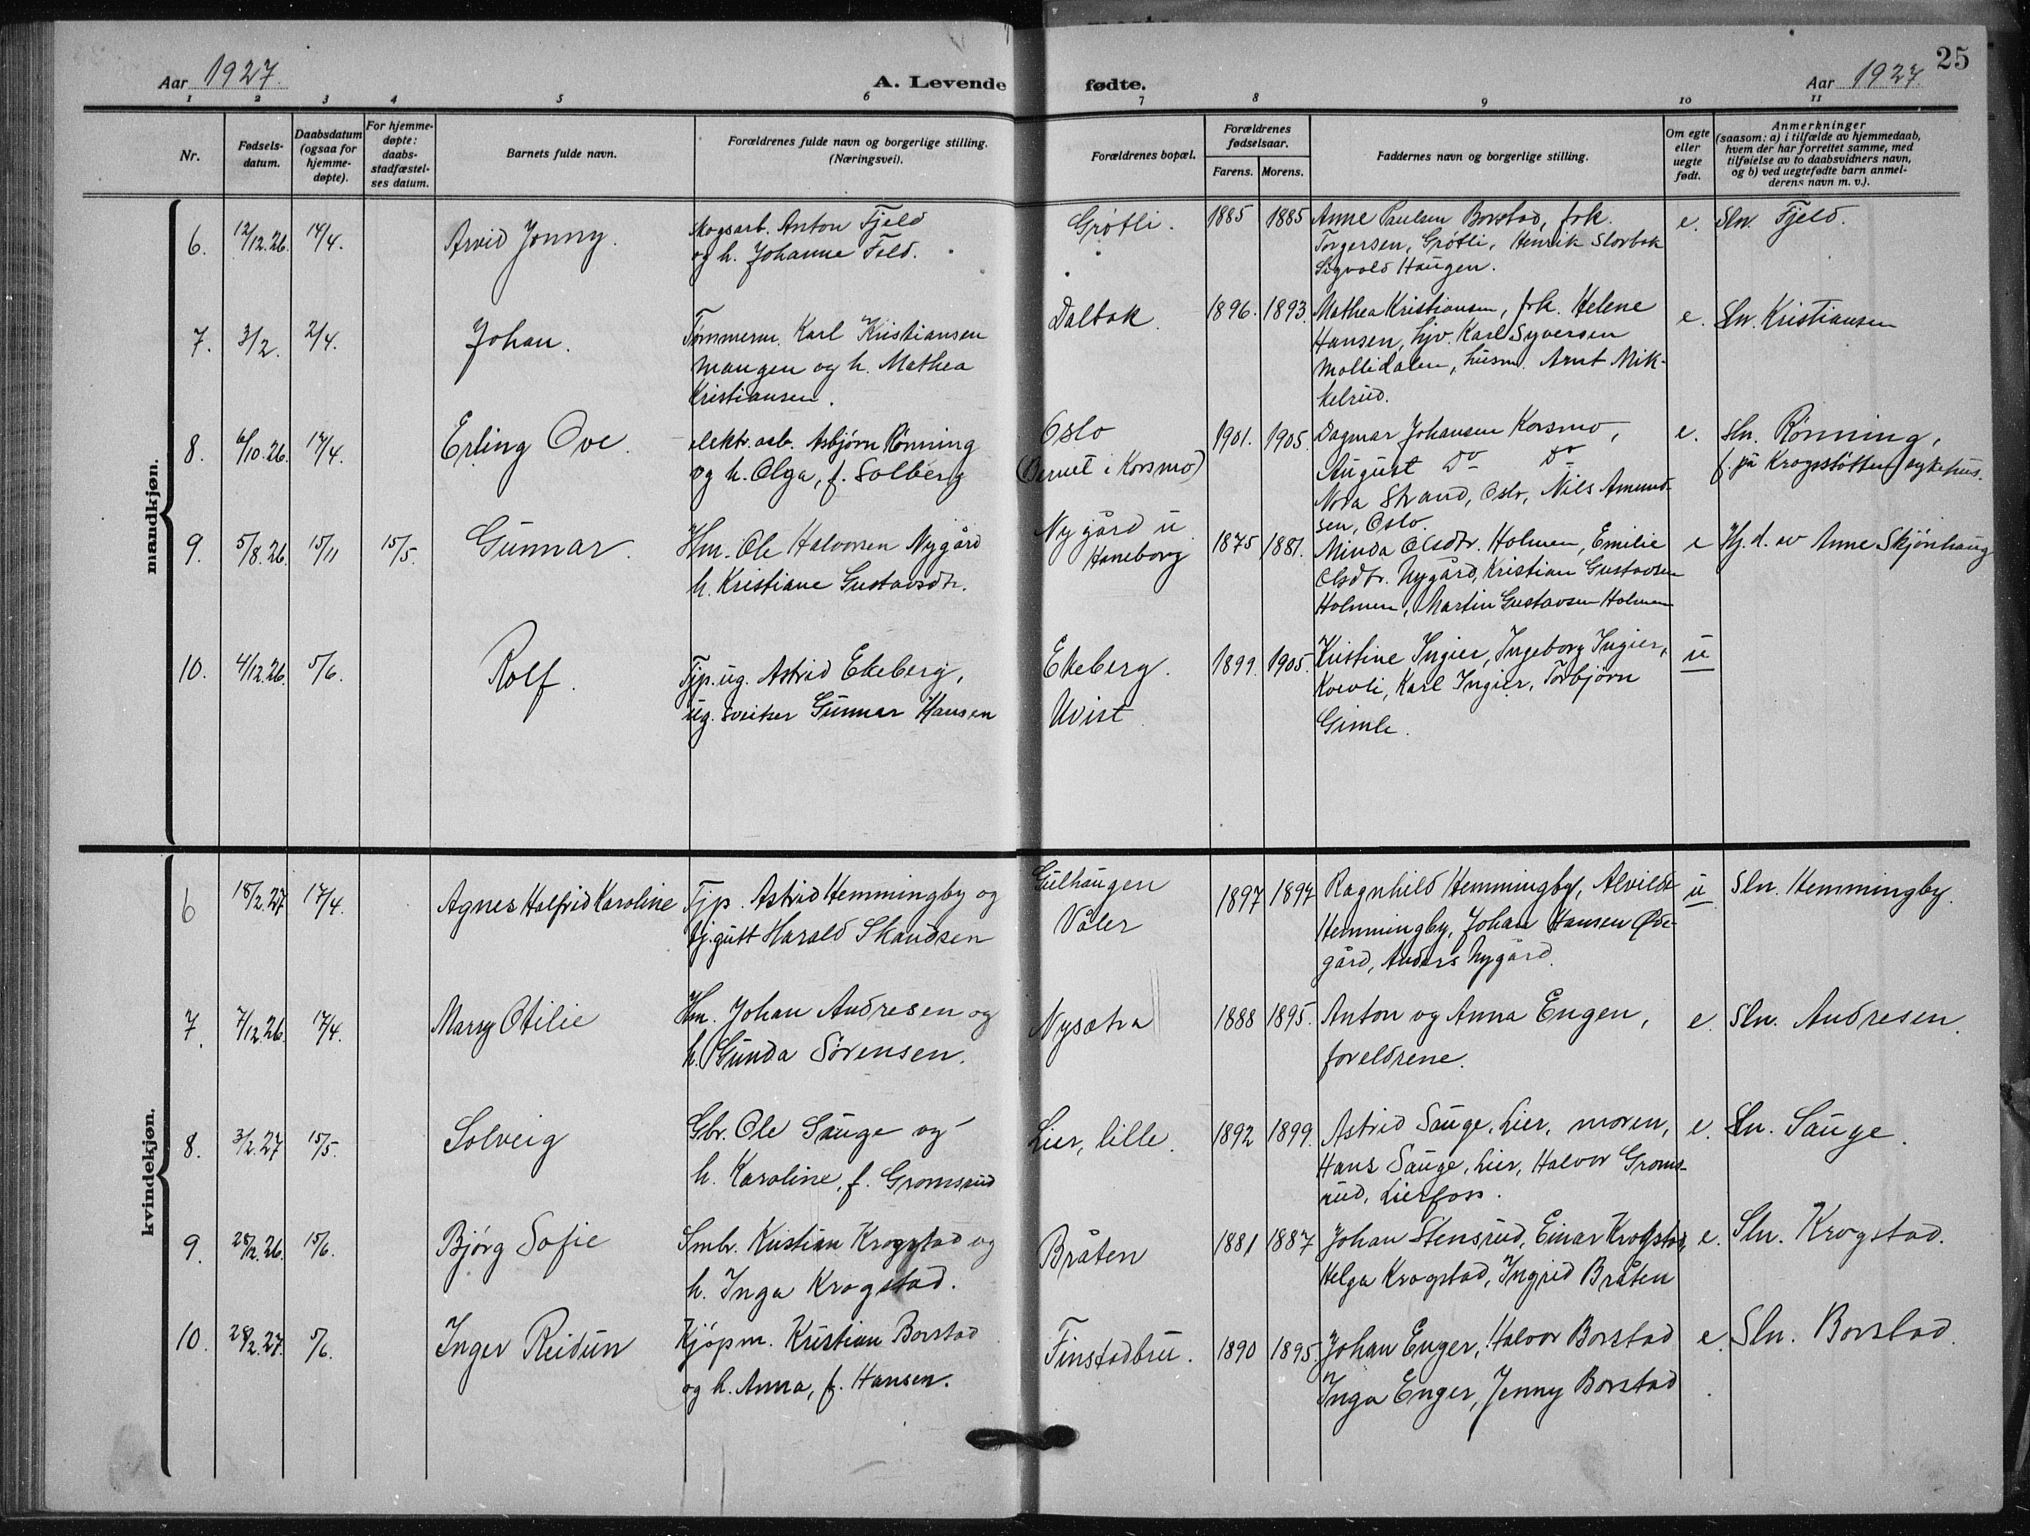 25
Aar 1927.
A. Levende fødte.
Aar 1927.
1 2 3 4 5 6 7 8 9 10 11
Nr.
Fødsels-
datum.
Daabsdatum
(ogsaa for
hjemme-
døpte).
For hjemme-
døpte:
daabs-
stadfæstel-
ses datum.
Barnets fulde navn.
Forældrenes fulde navn og borgerlige stilling.
(Næringsvei).
Forældrenes bopæl.
Forældrenes
fødselsaar.
Farens. Morens.
Faddernes navn og borgerlige stilling.
Om egte
eller
uegte
født.
Anmerkninger
(saasom: a) i tilfælde av hjemmedaab,
hvem der har forrettet samme, med
tilføielse av to daabsvidners navn,
og b) ved uegtefødte barn anmel-
derens navn m. v.).
mandkjøn.
6. 12/12.26. 14/4. Arvid Jonny.
Skogsarb. Anton Fjeld
og h. Johanne Fold.
Grøtli. 1885 1885
Anne Paulsen Borstad, frk.
Torgersen, Grøtli, Henrik Slorbak
Sigvald Haugen.
e. Sln. Fjeld.
7. 3/2. 2/4. Johan.
Tømmerm. Karl Kristiansen
Mangen og h. Mathea
Kristiansen.
Dalbak. 1896. 1893.
Mathea Kristiansen, frk. Helene
Hansen, hjv. Karl Syversen
Mollidalen, husm. Arnt Mik-
kelrud.
e. Sln. Kristiansen
8. 6/10.26. 17/4. Erling Ove.
elektr.arb. Asbjørn Rønning
og h. Olga, f. Solberg
Oslo
(Barnet i Korsmo)
1901. 1905.
Dagmar Johansen Korsmo,
August Do Do
Nora Strand, Oslo, Nils Amund-
sen, Oslo.
e. Sln. Rønning,
f. på Krogsstøtten sykehus.
9. 5/8.26. 15/11 15/5. Gunnar.
Hm. Ole Halvorsen Nygård
h. Kristiane Gustavsdtr.
Nygård u.
Haneborg
1875 1881.
Minda Olsdtr. Holmen, Emilie
Olsdtr. Nygård, Kristian Gustavsen
Holmen, Martin Gustavsen Holmen
e Hj.d. av Anne Skjønhaug
10. 4/12.26. 5/6. Rolf.
Tjp. ug. Astrid Ekeberg,
ug. sveitser Gunnar Hansen
Ekeberg.
Uvist.
1899. 1905.
Kristine Ingier, Ingeborg Ingier,
Kvevli, Karl Ingier, Torbjørn
Gimle.
u
kvindekjøn.
6 18/2.27 17/4. Agnes Halfrid Karoline
Tjp. Astrid Hemmingby og
tj.gutt Harald Skaudsen
Gulhaugen
Våler
1897 1897
Ragnhild Hemmingby, Alvilde
Hemmingby, Johan Hansen Øde-
gård, Anders Nygård.
u Sln. Hemmingby.
7. 7/12.26. 17/4. Marry Otilie
Hm. Johan Andresen og
h. Gunda Sørensen.
Nysætra 1888 1895.
Anton og Anna Engen,
foreldrene.
e. Sln. Andresen.
8. 3/2.27 15/5. Solveig
Gbr. Ole Sauge og
h. Karoline, f. Gromsrud
Lier, lille. 1892 1899.
Astrid Sauge, Lier, moren,
Hans Sauge, Lier, Halvor Groms-
rud, Lierfoss.
e. Sln. Sauge.
9. 28/12.26. 15/6. Bjørg Sofie
Smbr. Kristian Krogstad og
h. Inga Krogstad.
Bråten 1881 1887
Johan Stensrud, Einar Krogstad,
Helga Krogstad, Ingrid Bråten
e. Sln. Krogstad.
10. 28/2.27. 5/6. Inger Reidun
Kjøpm. Kristian Borstad
og h. Anna, f. Hansen.
Finstadbru. 1890 1895.
Johan Enger, Halvor Borstad
Inga Enger, Jenny Borstad
e. Sln. Borstad.